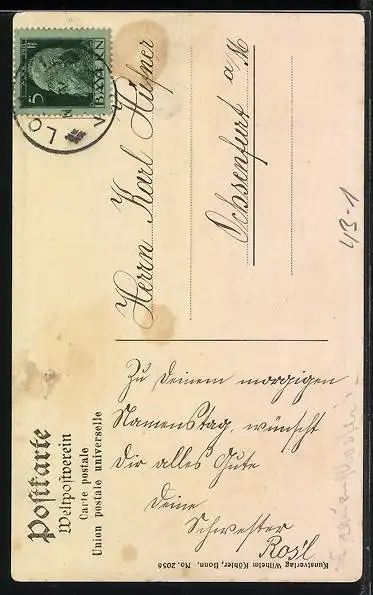 Postkarte
Weltpostverein
Carte postale
Union postale universelle
5
BAYERN
LO
Herrn Karl Hüfner
Ochsenfurt a/M
43-1
Zu Deinem morgigen
Namenstag, wünscht
Dir alles Gute
Deine
Schwester
Ros'l
Kunstverlag Wilhelm Köhler, Bonn, No. 2056